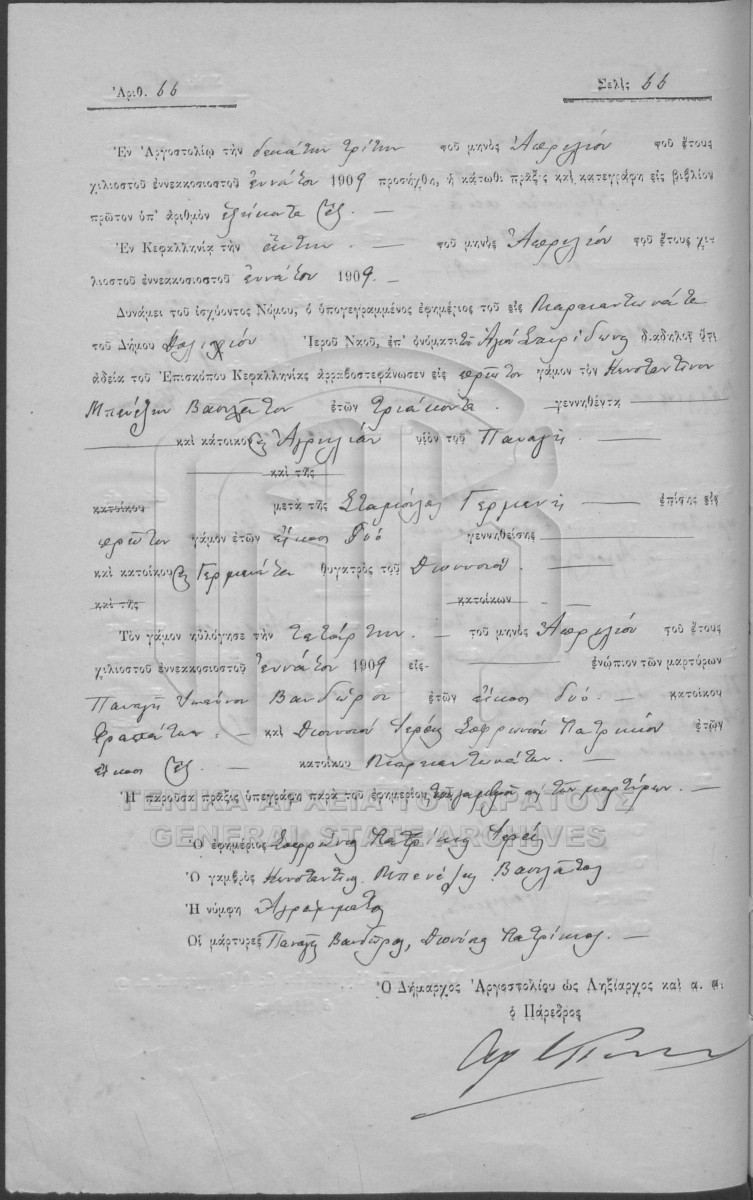 Ἀριθ. 66
Σελὶς 66
Ἐν Ἀργοστολίῳ τὴν δεκάτην τρίτην τοῦ μηνὸς Ἀπριλίου τοῦ ἔτους
χιλιοστοῦ ἐννεακοσιοστοῦ ἐννάτου 1909 προσήχθη, ἡ κάτωθι πρᾶξις καὶ κατεγράφη εἰς βιβλίον
πρῶτον ὑπ' ἀριθμὸν ἑξήκοντα ἕξ. —
Ἐν Κεφαλληνίᾳ τὴν ἕκτην. — τοῦ μηνὸς Ἀπριλίου τοῦ ἔτους χι-
λιοστοῦ ἐννεακοσιοστοῦ ἐννάτου 1909. —
Δυνάμει τοῦ ἰσχύοντος Νόμου, ὁ ὑπογεγραμμένος ἐφημέριος τοῦ εἰς Μαρκαντωνάτα
τοῦ Δήμου Παλικίου Ἱεροῦ Ναοῦ, ἐπ' ὀνόματι τοῦ Ἁγίου Σπυρίδωνος διαδηλοῖ ὅτι
ἀδείᾳ τοῦ Ἐπισκόπου Κεφαλληνίας ἀρραβοστεφάνωσεν εἰς πρῶτον γάμον τὸν Κωνσταντῖνον
Βασιλάτον ἐτῶν τριάκοντα. — γεννηθέντα —
καὶ κάτοικον υἱὸν τοῦ Παναγῆ. —
καὶ τῆς
κατοίκου μετὰ τῆς Σταμούλας Γερμενῆ — ἐπίσης εἰς
πρῶτον γάμον ἐτῶν εἴκοσι δύο γεννηθείσης —
καὶ κατοίκου Γερμενάτα θυγατρὸς τοῦ Διονυσίου. —
καὶ τῆς κατοίκων —
Τὸν γάμον ηὐλόγησε τὴν τετάρτην. — τοῦ μηνὸς Ἀπριλίου τοῦ ἔτους
χιλιοστοῦ ἐννεακοσιοστοῦ ἐννάτου 1909 εἰς — ἐνώπιον τῶν μαρτύρων
Παναγῆ Βανδώρου ἐτῶν εἴκοσι δύο. — κατοίκου
— καὶ Διονυσίου Ἱερέως Σωφρονίου Πατρικίου ἐτῶν
εἴκοσι ἕξ. — κατοίκου Μαρκαντωνάτων. —
Ἡ παροῦσα πρᾶξις ὑπεγράφη παρὰ τοῦ ἐφημερίου, τοῦ γαμβροῦ καὶ τῶν μαρτύρων. —
ΓΕΝΙΚΑ ΑΡΧΕΙΑ ΤΟΥ ΚΡΑΤΟΥΣ
GENERAL STATE ARCHIVES
Ὁ ἐφημέριος Σωφρόνιος Πατρίκιος Ἱερεὺς
Ὁ γαμβρὸς Κωνσταντῖνος Βασιλάτος
Ἡ νύμφη Ἀγράμματος
Οἱ μάρτυρες Παναγῆς Βανδῶρος, Διονύσιος Πατρίκιος. —
Ὁ Δήμαρχος Ἀργοστολίου ὡς Ληξίαρχος καὶ α. α.
ὁ Πάρεδρος